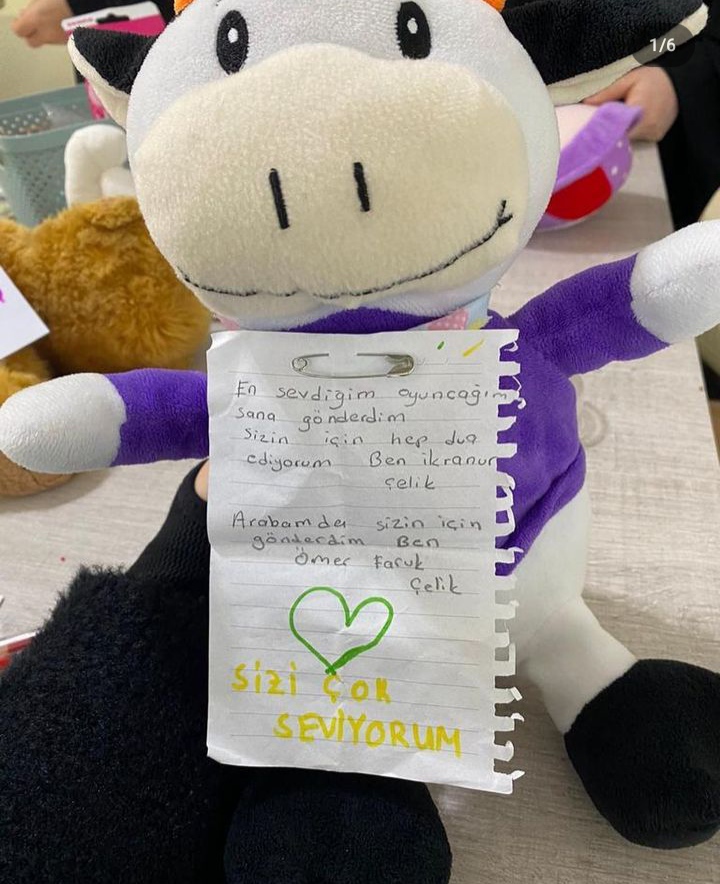 1/6
En sevdiğim oyuncağım
sana gönderdim
Sizin için hep dua
ediyorum Ben ikranur
Çelik
Arabamda sizin için
gönderdim Ben
Ömer Faruk
Çelik
SİZİ ÇOK
SEVİYORUM